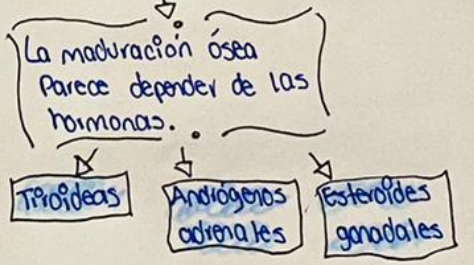 La maduración ósea
Parece depender de las
hormonas.
Tiroideas
Andrógenos
adrenales
Esteroides
gonadales